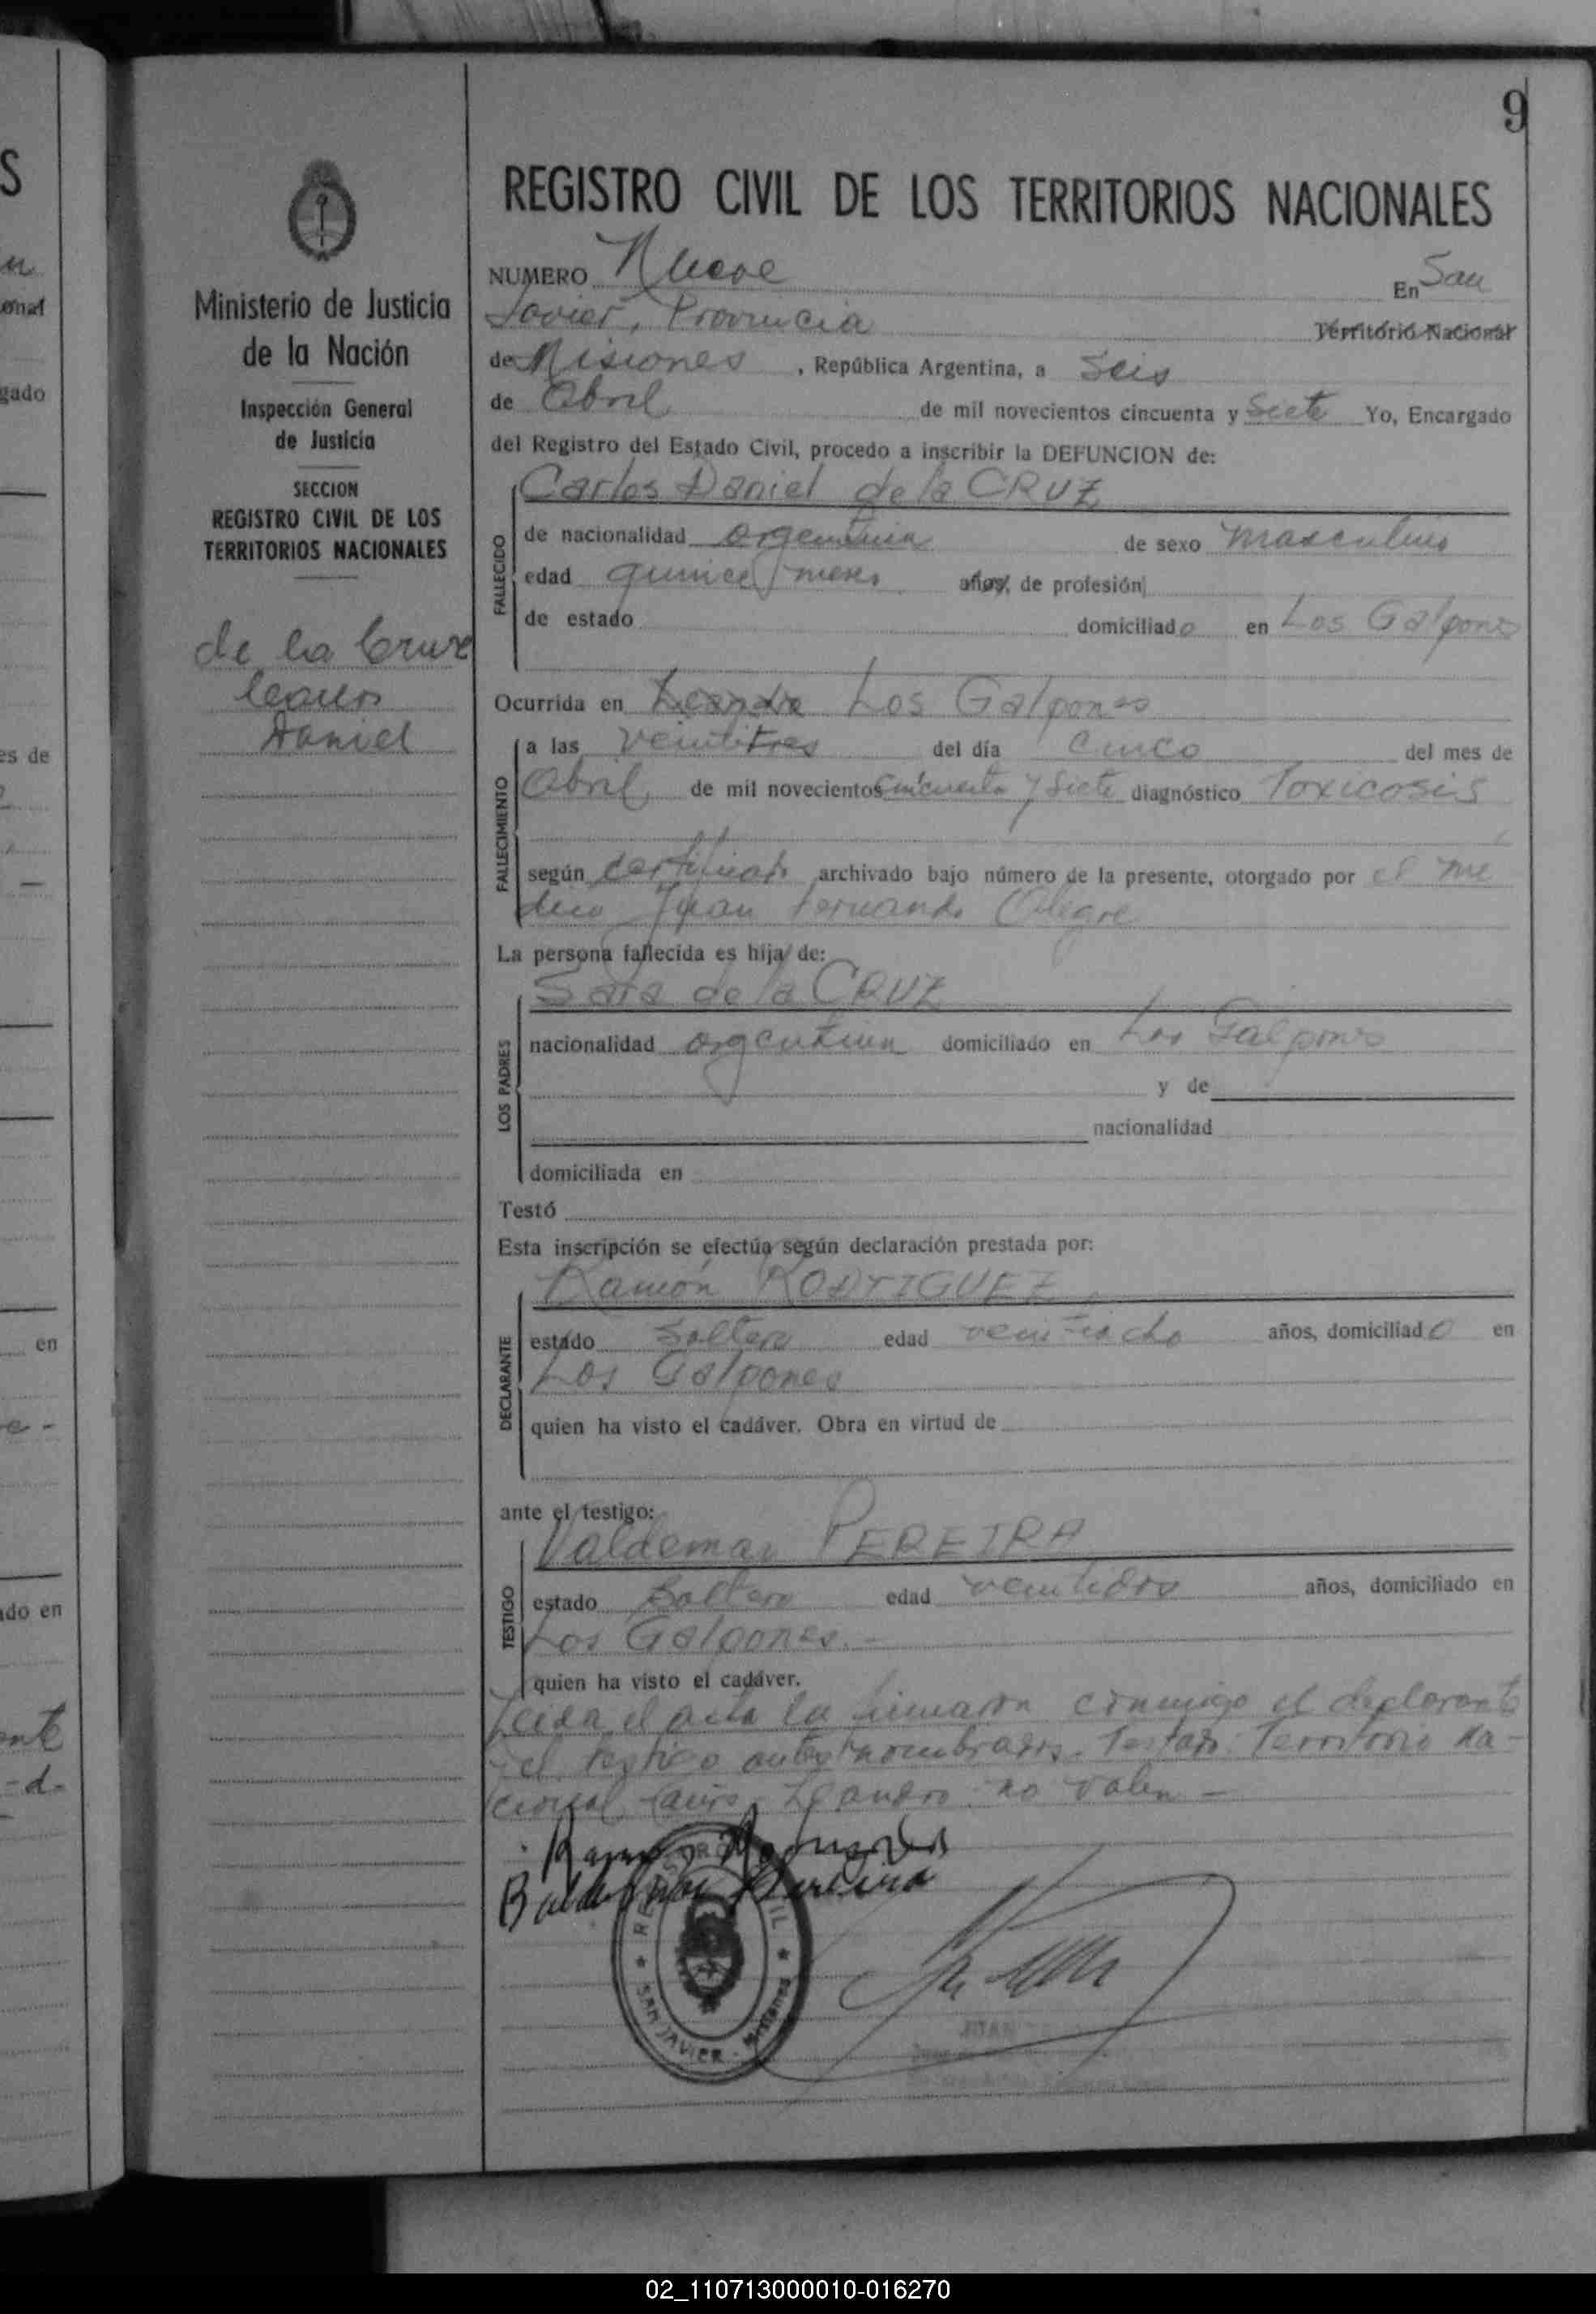 9
Ministerio de Justicia
de la Nación
Inspección General
de Justicia
SECCION
REGISTRO CIVIL DE LOS
TERRITORIOS NACIONALES
de la Cruz
Daniel
REGISTRO CIVIL DE LOS TERRITORIOS NACIONALES
NUMERO Nueve En San
Javier, Provincia Territorio Nacional
de Misiones , República Argentina, a Seis
de Abril de mil novecientos cincuenta y Siete Yo, Encargado
del Registro del Estado Civil, procedo a inscribir la DEFUNCION de:
Carlos Daniel de la CRUZ
FALLECIDO
de nacionalidad argentina de sexo masculino
edad quince meses años, de profesión
de estado domiciliado en Los Galpones
Ocurrida en Leandro Los Galpones
FALLECIMIENTO
a las veintitres del día cinco del mes de
Abril de mil novecientos cincuenta y Siete diagnóstico Toxicosis
según certificado archivado bajo número de la presente, otorgado por el me
dico Juan Fernando Alegre
La persona fallecida es hija de:
LOS PADRES
Sara de la CRUZ
nacionalidad argentina domiciliado en Los Galpones
y de
nacionalidad
domiciliada en
Testó
Esta inscripción se efectúa según declaración prestada por:
DECLARANTE
Ramón RODRIGUEZ
estado Soltero edad veintiocho años, domiciliado en
Los Galpones
quien ha visto el cadáver. Obra en virtud de
ante el testigo:
TESTIGO
Valdemar PEREIRA
estado Soltero edad veintidos años, domiciliado en
Los Galpones.-
quien ha visto el cadáver.
Leida el acta la firmaron conmigo el declarante
y el testigo antes nombrados. Testado: Territorio Na-
cional, años, Leandro: no valen-
Baldemar Pereira
REGISTRO CIVIL
SAN JAVIER - Misiones
JUAN
02_110713000010-016270